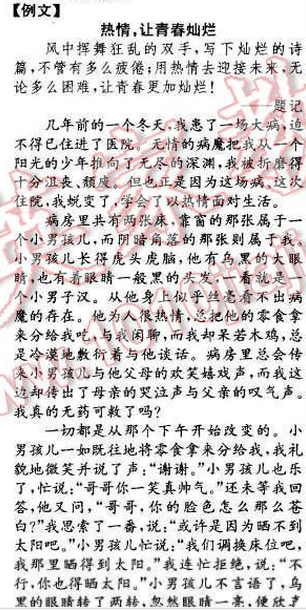 【例文】
热情,让青春灿烂
风中挥舞狂乱的双手,写下灿烂的诗
篇,不管有多么疲倦;用热情去迎接未来,无
论多么困难,让青春更加灿烂!
——题记
几年前的一个冬天,我患了一场大病,迫
不得已住进了医院。无情的病魔把我从一个
阳光的少年推向了无尽的深渊,我被折磨得
十分沮丧、颓废。但也正是因为这场病、这次
住院,我蜕变了,学会了以热情面对生活。
病房里共有两张床,靠窗的那张属于一
个小男孩儿,而阴暗角落的那张则属于我。
小男孩儿长得虎头虎脑,他有乌黑的大眼
睛,也有着眼睛一般黑的头发,一看就是一
个小男子汉。从他身上似乎丝毫看不出病
魔的存在。他为人很热情,总把他的零食拿
来分给我吃,与我闲聊,而我却呆若木鸡,总
是冷漠地敷衍着与他谈话。病房里总会传
来小男孩儿与他父母的欢笑嬉戏声,而我这
边却传出了母亲的哭泣声与父亲的叹气声。
我真的无药可救了吗?
一切都是从那个下午开始改变的。小
男孩儿一如既往地将零食拿来分给我,我礼
貌地微笑并说了声:“谢谢。”小男孩儿也乐
了,忙说:“哥哥你一笑真帅气。”还未等我回
答,他又问,“哥哥,你的脸色怎么那么苍
白?”我思索了一番,说:“或许是因为晒不到
太阳吧。”小男孩儿忙说:“我们调换床位吧,
我那里晒得到太阳。”我连忙拒绝,说:“不
行,你也得晒太阳。”小男孩儿不言语了,乌
黑的眼睛转了两转,忽然眼睛一亮,便欣